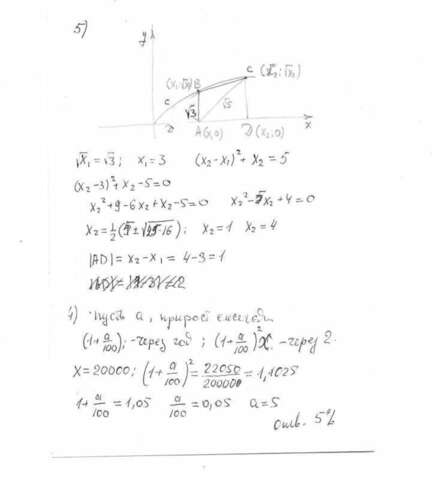 5)
y
(x₁;√x₁) B
C (x₂;√x₂)
c
√3
√5
A(x₁,0)
D (x₂;0)
x
√x₁ = √3; x₁ = 3 (x₂-x₁)² + x₂ = 5
(x₂-3)² + x₂ - 5 = 0
x₂² + 9 - 6x₂ + x₂ - 5 = 0 x₂² - 5x₂ + 4 = 0
x₂ = 1/2 (5 ± √25-16); x₂ = 1 x₂ = 4
|AD| = x₂ - x₁ = 4 - 3 = 1
Пусть a, прирост ежегодн.
(1 + a/100); - через год; (1 + a/100)² x. - через 2.
X = 20000; (1 + a/100)² = 22050/20000 = 1,1025
1 + a/100 = 1,05 a/100 = 0,05 a = 5
отв. 5%